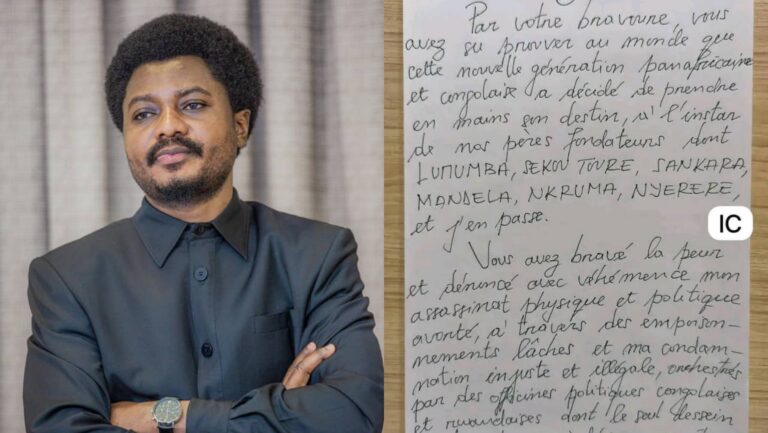 Par votre bravoure, vous
avez su prouver au monde que
cette nouvelle génération panafricaine
et congolaise a décidé de prendre
en mains son destin, à l'instar
de nos pères fondateurs dont
LUMUMBA, SEKOU TOURE, SANKARA,
MANDELA, NKRUMA, NYERERE,
et j'en passe.
IC
Vous avez bravé la peur
et dénoncé avec véhémence mon
assassinat physique et politique
avorté, à travers des emprison-
nements lâches et ma condam-
nation injuste et illégale, orchestrés
par des officines politiques congolaises
et rwandaises dont le seul dessein